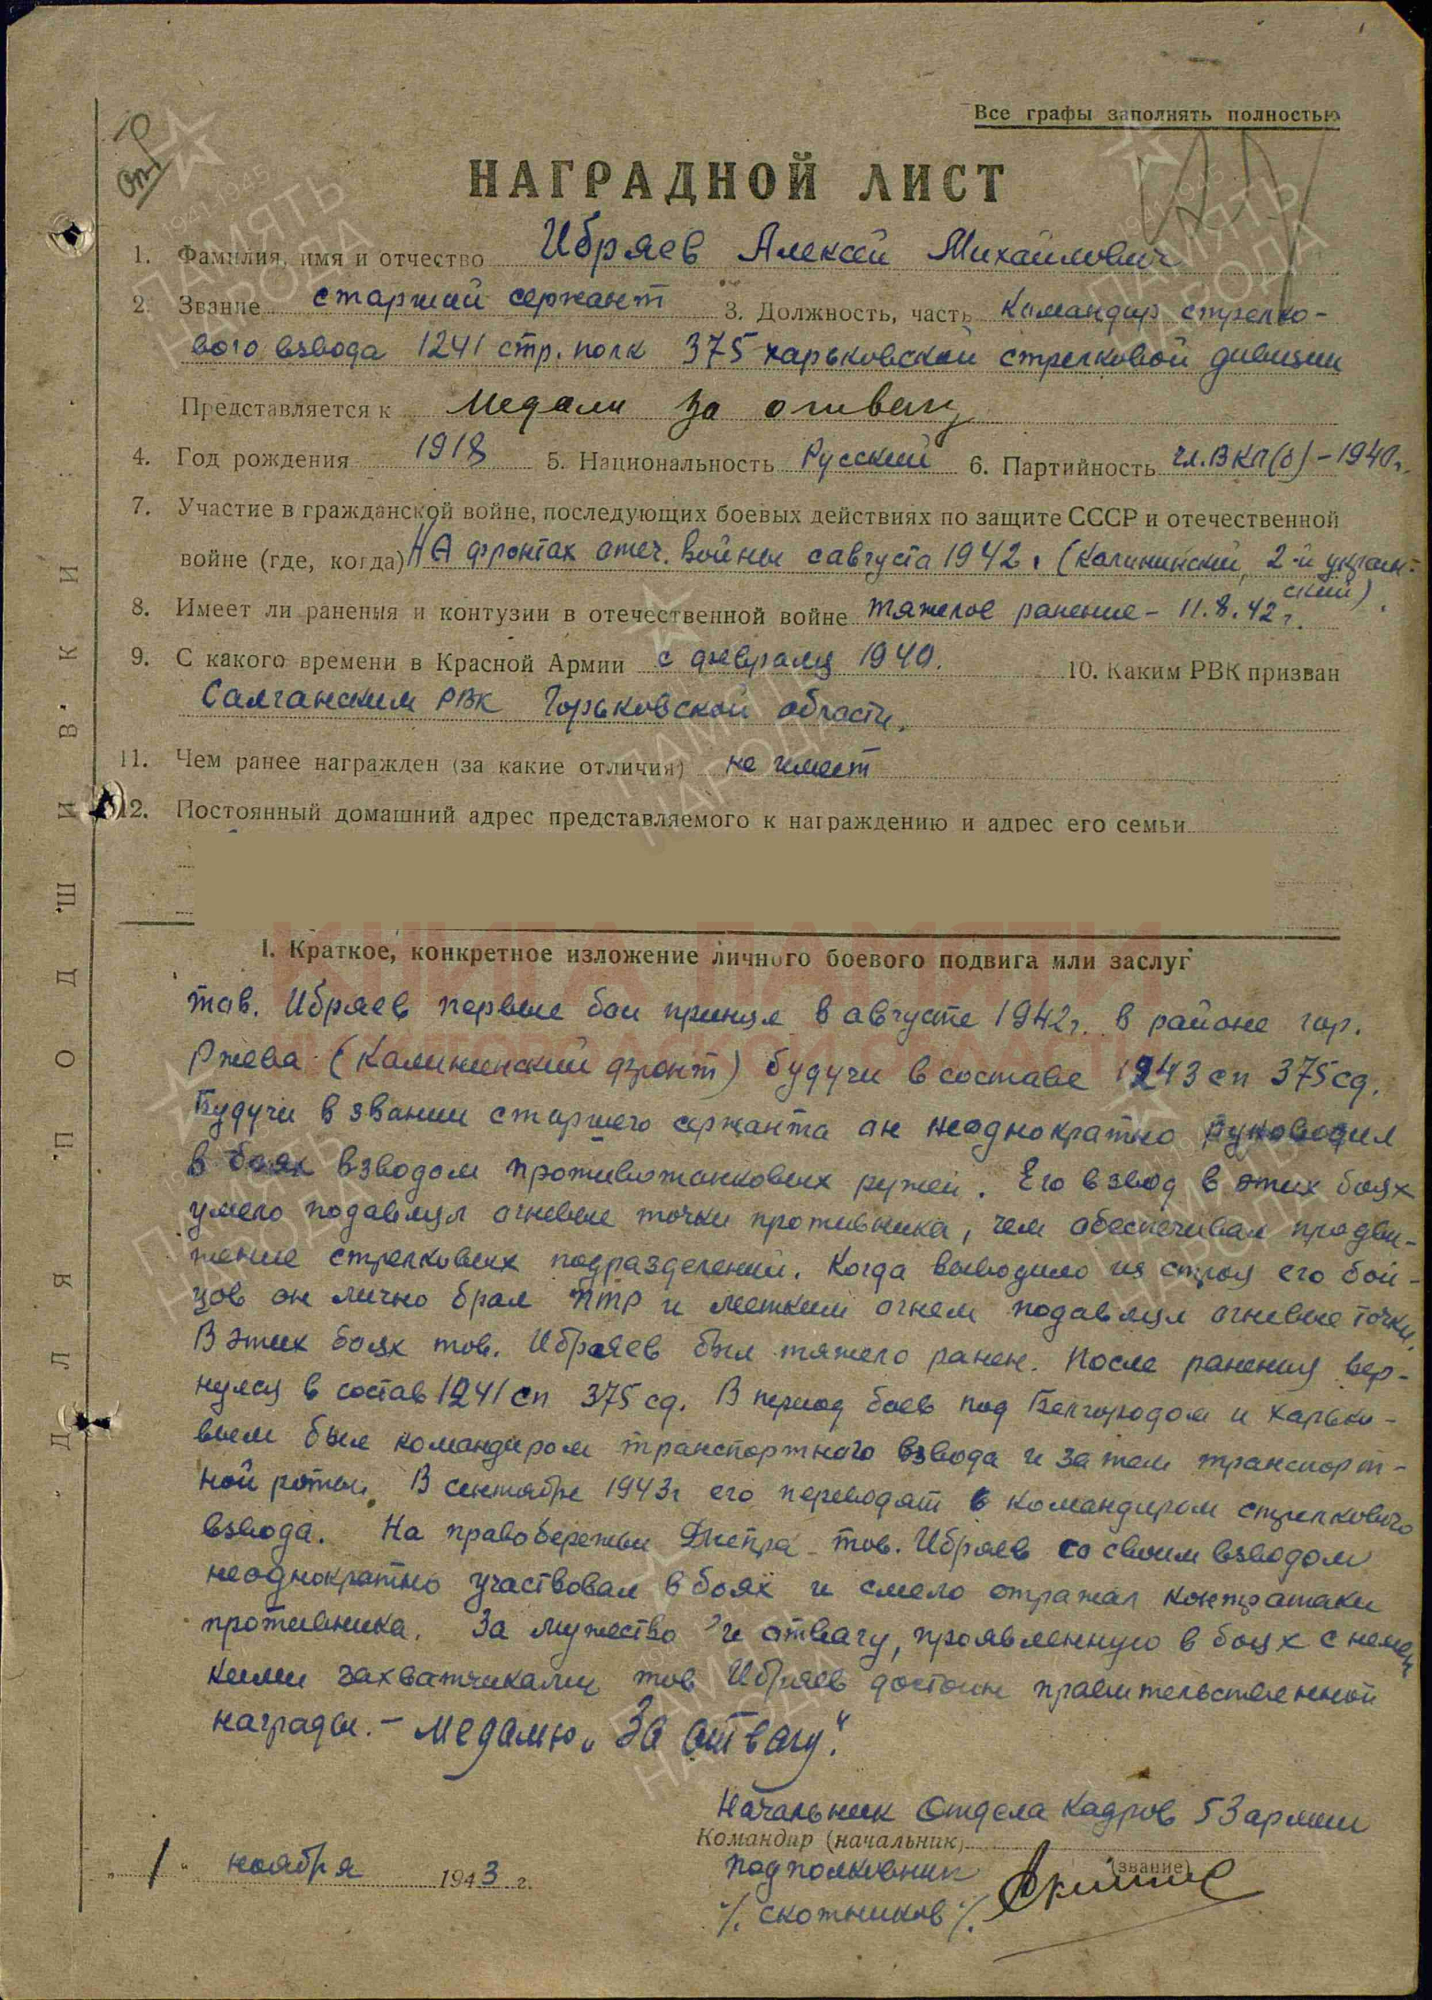 Все графы заполнять полностью
НАГРАДНОЙ ЛИСТ
1. Фамилия, имя и отчество Ибряев Алексей Михайлович
2. Звание старший сержант 3. Должность, часть Командир стрелко-
вого взвода 1241 стр. полк 375 харьковской стрелковой дивизии
Представляется к медали За отвагу
4. Год рождения 1918 5. Национальность Русский 6. Партийность чл. ВКП(б) - 1940г.
7. Участие в гражданской войне, последующих боевых действиях по защите СССР и отечественной
войне (где, когда) На фронтах отеч. войны с августа 1942г. (Калининский, 2-й украин-
ский).
8. Имеет ли ранения и контузии в отечественной войне тяжелое ранение - 11.8.42г.
9. С какого времени в Красной Армии с февраля 1940. 10. Каким РВК призван
Салганским РВК Горьковской области.
11. Чем ранее награжден (за какие отличия) не имеет
12. Постоянный домашний адрес представляемого к награждению и адрес его семьи
I. Краткое, конкретное изложение личного боевого подвига или заслуг
тов. Ибряев первые бои принял в августе 1942г. в районе гор.
Ржева (Калининский фронт) будучи в составе 1243 сп 375 сд.
Будучи в звании старшего сержанта он неоднократно руководил
в боях взводом противотанковых ружей. Его взвод в этих боях
умело подавлял огневые точки противника, чем обеспечивал продви-
жение стрелковых подразделений. Когда выводило из строя его бой-
цов он лично брал ПТР и метким огнем подавлял огневые точки.
В этих боях тов. Ибряев был тяжело ранен. После ранения вер-
нулся в состав 1241 сп 375 сд. В период боев под Белгородом и Харько-
вым был командиром транспортного взвода и затем транспорт-
ной роты. В сентябре 1943г его переводят командиром стрелкового
взвода. На правобережьи Днепра тов. Ибряев со своим взводом
неоднократно участвовал в боях и смело отражал контратаки
противника. За мужество и отвагу, проявленную в боях с немец
кими захватчиками тов Ибряев достоин правительственной
награды. - медалю „За отвагу".
Начальник Отдела Кадров 53 армии
Командир (начальник)
подполковник (звание)
/. Скотников /.
„ 1 " ноября 1943 г.
ДЛЯ ПОДШИВКИ
ПАМЯТЬ НАРОДА
1941-1945
КНИГА ПАМЯТИ